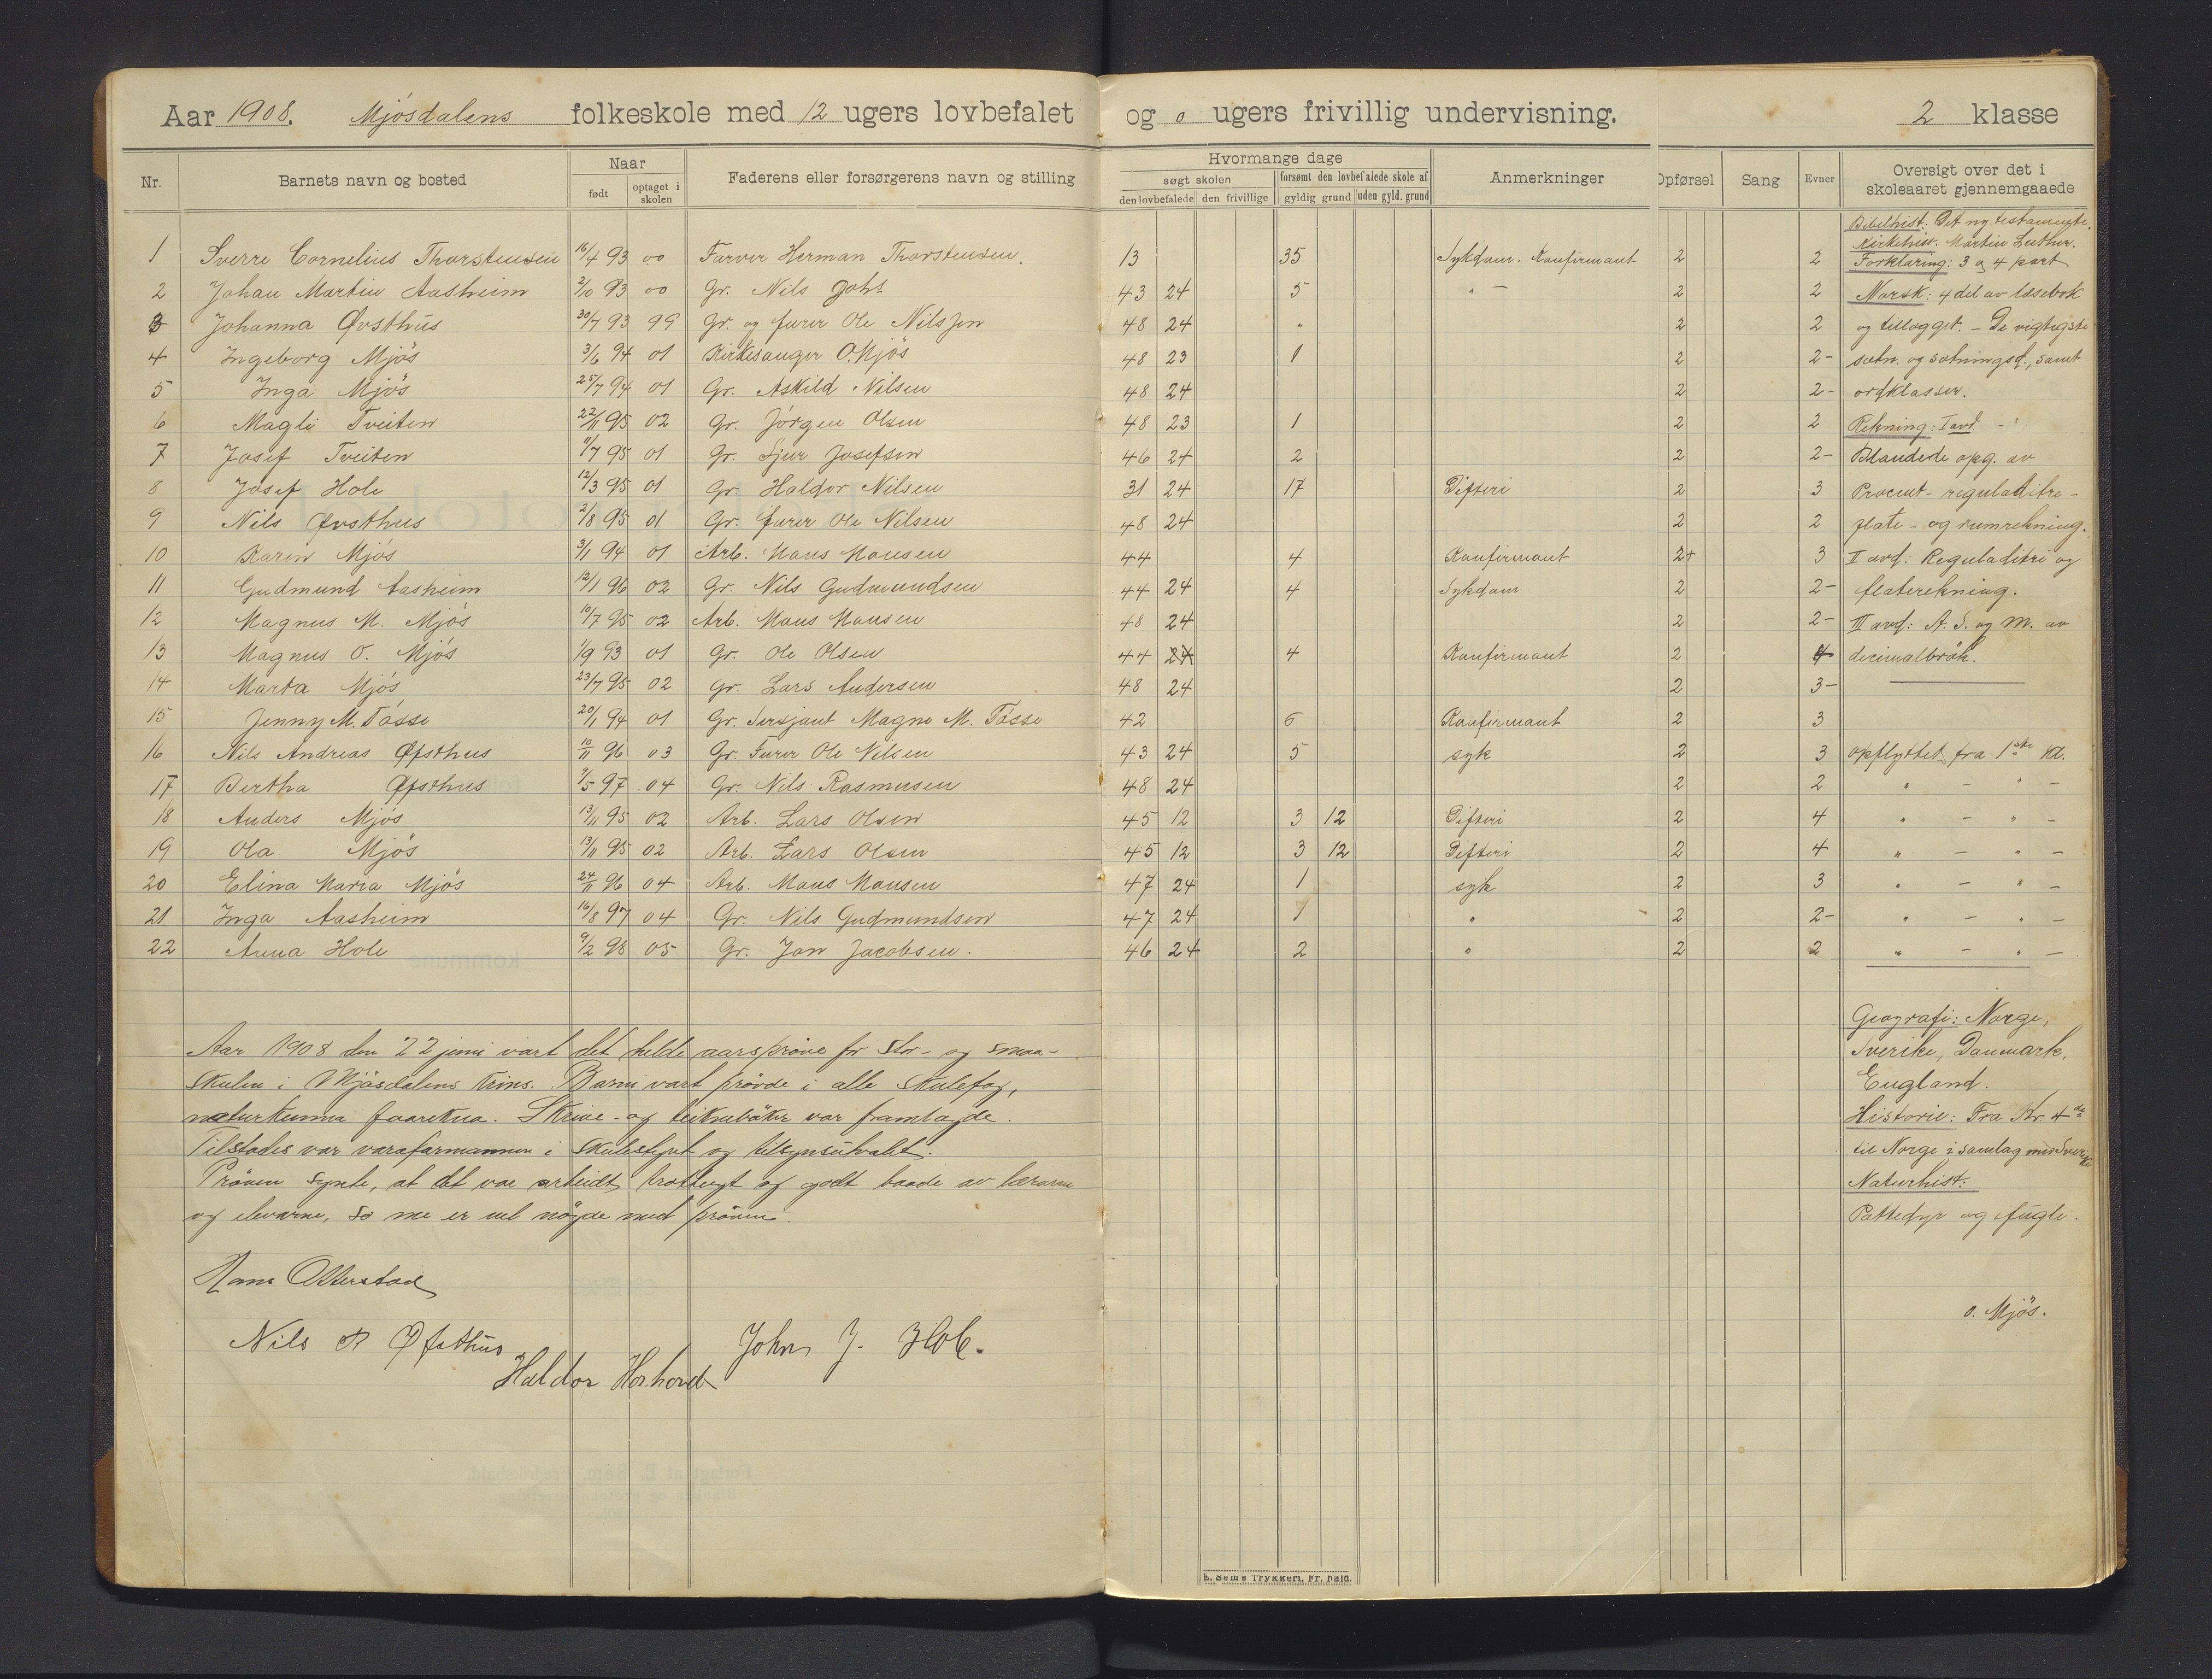 Aar 1908. Mjösdalens folkeskole med 12 ugers lovbefalet og 0 ugers frivillig undervisning. 2 klasse
Nr. Barnets navn og bosted Naar født optaget i skolen Faderens eller forsørgerens navn og stilling Hvormange dage søgt skolen den lovbefalede den frivillige forsømt den lovbefalede skole af gyldig grund uden gyld. grund Anmerkninger Opførsel Sang Evner Oversigt over det i skoleaaret gjennemgaaede
Bibelhist: Det ny testamente.
Kirkehist. Martin Luther.
1 Sverre Cornelius Thorstensen 16/4 93 00 Farver Herman Thorstensen. 13 35 Sykdom. Konfirmant 2 2 Forklaring: 3 og 4 part
2 Johan Martin Aasheim 2/10 93 00 Gr. Nils Johs 43 24 5 " — 2 2 Norsk: 4 del av læsebok
3 Johanna Øvsthus 30/7 93 99 Gr. og furer Ole Nilssen 48 24 " 2 2 og tillegget. - De vigtigste
4 Ingeborg Mjös 3/6 94 01 Kirkesanger O. Mjös 48 23 1 2 2- sætn. og sætningsd., samt
5 Inga Mjös 25/7 94 01 Gr. Askild Nilsen 48 24 2 2- ordklasser.
6 Magli Tveiten 22/11 95 02 Gr. Jörgen Olsen 48 23 1 2 2 Rekning: I avd. - :
7 Josef Tveiten 9/7 95 01 Gr. Sjur Josefsen 46 24 2 2 2- Blandede opg. av
8 Josef Hole 12/3 95 01 Gr. Haldor Nilsen 31 24 17 Difteri 2 3 Procent- reguladitre-
9 Nils Øvsthus 2/8 95 01 Gr. furer Ole Nilsen 48 24 2 2 flate- og rumrekning.
10 Karin Mjös 3/1 94 01 Arb. Mons Monsen 44 4 Konfirmant 2+ 3 II avd: Reguladitri og
11 Gudmund Aasheim 12/1 96 02 Gr. Nils Gudmundsen 44 24 4 Sykdom 2 2- flaterekning.
12 Magnus M. Mjös 10/7 95 02 Arb. Mons Monsen 48 24 2 2- III avd: A. S. og M. av
13 Magnus O. Mjös 1/9 93 01 Gr. Ole Olsen 44 24 4 Konfirmant 2 4 decimalbrök.
14 Marta Mjös 23/7 95 02 Gr. Lars Andersen 48 24 2 3-
15 Jenny M. Tösse 20/1 94 01 Gr. Sersjant Magne M. Tösse 42 6 Konfirmant 2 3
16 Nils Andreas Øfsthus 10/11 96 03 Gr. Furer Ole Nilsen 43 24 5 syk 2 3 opflyttet fra 1ste kl.
17 Bertha Øfsthus 9/5 97 04 Gr. Nils Rasmusen 48 24 2 2 " - " -
18 Anders Mjös 13/11 95 02 Arb. Lars Olsen 45 12 3 12 Difteri 2 4 " - " -
19 Ola Mjös 13/11 95 02 Arb. Lars Olsen 45 12 3 12 Difteri 2 4 " - " -
20 Elina Maria Mjös 24/11 96 04 Arb. Mons Monsen 47 24 1 syk 2 3 " - " -
21 Inga Aasheim 16/8 97 04 Gr. Nils Gudmundsen 47 24 1 " 2 2- " - " -
22 Anna Hole 9/2 98 05 Gr. Jon Jacobsen. 46 24 2 " 2 2 " - " -
Aar 1908 den 22 juni vart det helde aarspröve for stor- og smaa-
skulen i Mjösdalens krins. Barni vart prövde i alle skulefag,
naturkunna faarekua. Skrive- og teikneböker var framlagde.
Tilstades var varaformannen i skulestyret og tilsynsutvalet.
Pröven synte, at det var arbeidt trottugt og godt baade av lærarne
og elevarne, so me er vel nögde med pröven.
Hans Otterstad
Nils Øfsthus
John J. Hole.
Haldor
Geografi: Norge,
Sverike, Danmark,
England.
Historie: Fra Kr. 4de
til Norge i samlag med Sverike
Naturhist:
Pattedyr og fugle.
O. Mjös.
E. Sems Trykkeri, Fr.hald.